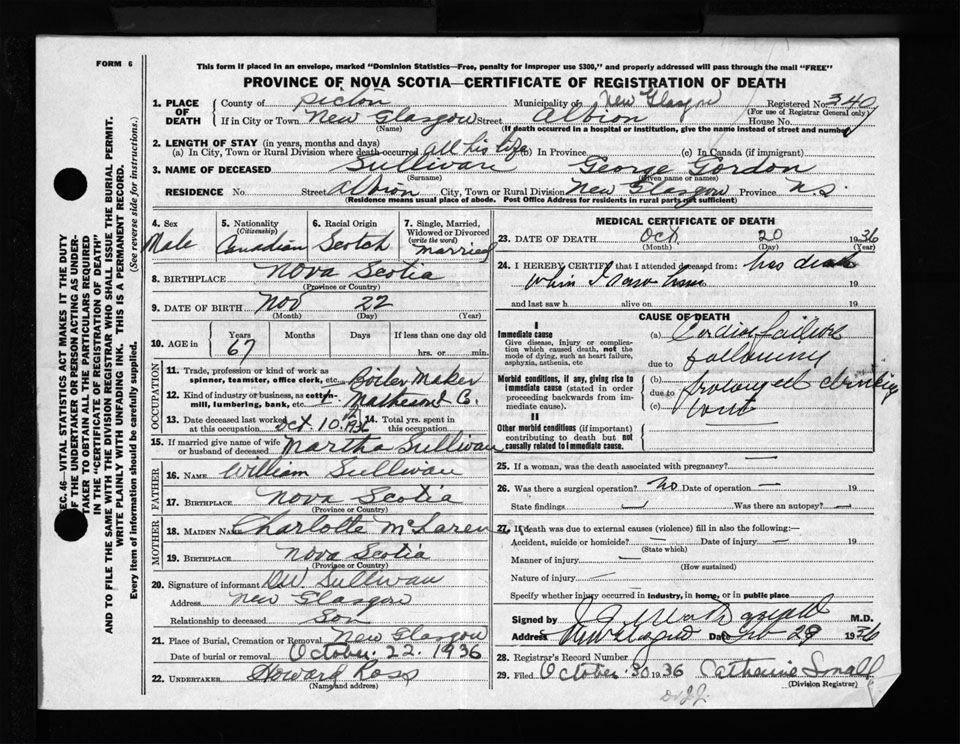 FORM 6
This form if placed in an envelope, marked "Dominion Statistics—Free, penalty for improper use $300," and properly addressed will pass through the mail "FREE"
PROVINCE OF NOVA SCOTIA—CERTIFICATE OF REGISTRATION OF DEATH
1. PLACE OF DEATH County of Pictou Municipality of New Glasgow Registered No. 340
(For use of Registrar General only)
If in City or Town New Glasgow Street Albion House No.
(Name) (If death occurred in a hospital or institution, give the name instead of street and number)
2. LENGTH OF STAY (in years, months and days)
(a) In City, Town or Rural Division where death occurred all his life (b) In Province (c) In Canada (if immigrant)
3. NAME OF DECEASED Sullivan George Gordon
(Surname) (Given name or names)
RESIDENCE No. Street Albion City, Town or Rural Division New Glasgow Province N.S.
(Residence means usual place of abode. Post Office Address for residents in rural parts not sufficient)
4. Sex Male
5. Nationality (Citizenship) Canadian
6. Racial Origin Scotch
7. Single, Married, Widowed or Divorced (write the word) Married
8. BIRTHPLACE Nova Scotia
(Province or Country)
9. DATE OF BIRTH Nov 22
(Month) (Day) (Year)
10. AGE in Years 67 Months Days If less than one day old
hrs. or min.
OCCUPATION
11. Trade, profession or kind of work as spinner, teamster, office clerk, etc. Boiler Maker
12. Kind of industry or business, as cotton-mill, lumbering, bank, etc. I. Matheson & Co.
13. Date deceased last worked at this occupation Oct. 10
14. Total yrs. spent in this occupation
15. If married give name of wife or husband of deceased Martha Sullivan
FATHER
16. NAME William Sullivan
17. BIRTHPLACE Nova Scotia
(Province or Country)
MOTHER
18. MAIDEN NAME Charlotte McLaren
19. BIRTHPLACE Nova Scotia
(Province or Country)
20. Signature of informant Sullivan
Address New Glasgow
Relationship to deceased Son
21. Place of Burial, Cremation or Removal New Glasgow
Date of burial or removal October. 22. 1936
22. UNDERTAKER Howard Ross
(Name and address)
MEDICAL CERTIFICATE OF DEATH
23. DATE OF DEATH Oct. 20 1936
(Month) (Day) (Year)
24. I HEREBY CERTIFY that I attended deceased from: was dead
when I saw him 19
and last saw h alive on 19
CAUSE OF DEATH
I
Immediate cause
Give disease, injury or complication which caused death, not the mode of dying, such as heart failure, asphyxia, asthenia, etc
(a) Cardiac failure
due to following
Morbid conditions, if any, giving rise to immediate cause (stated in order proceeding backwards from immediate cause).
(b) prolonged drinking
due to
(c) bout
II
Other morbid conditions (if important) contributing to death but not causally related to immediate cause.
25. If a woman, was the death associated with pregnancy? —
26. Was there a surgical operation? No Date of operation — 19
State findings — Was there an autopsy? —
27. If death was due to external causes (violence) fill in also the following:—
Accident, suicide or homicide? — Date of injury — 19
(State which)
Manner of injury —
(How sustained)
Nature of injury —
Specify whether injury occurred in industry, in home, or in public place
Signed by M.D.
Address New Glasgow Date 29 1936
28. Registrar's Record Number
29. Filed October. 30 1936 Catherine
(Division Registrar)
Dr J.J.
SEC. 46—VITAL STATISTICS ACT MAKES IT THE DUTY
OF THE UNDERTAKER OR PERSON ACTING AS UNDERTAKER TO OBTAIN ALL THE PARTICULARS REQUIRED
IN THE "CERTIFICATE OF REGISTRATION OF DEATH"
AND TO FILE THE SAME WITH THE DIVISION REGISTRAR WHO SHALL ISSUE THE BURIAL PERMIT.
WRITE PLAINLY WITH UNFADING INK. THIS IS A PERMANENT RECORD.
Every item of information should be carefully supplied. (See reverse side for instructions.)